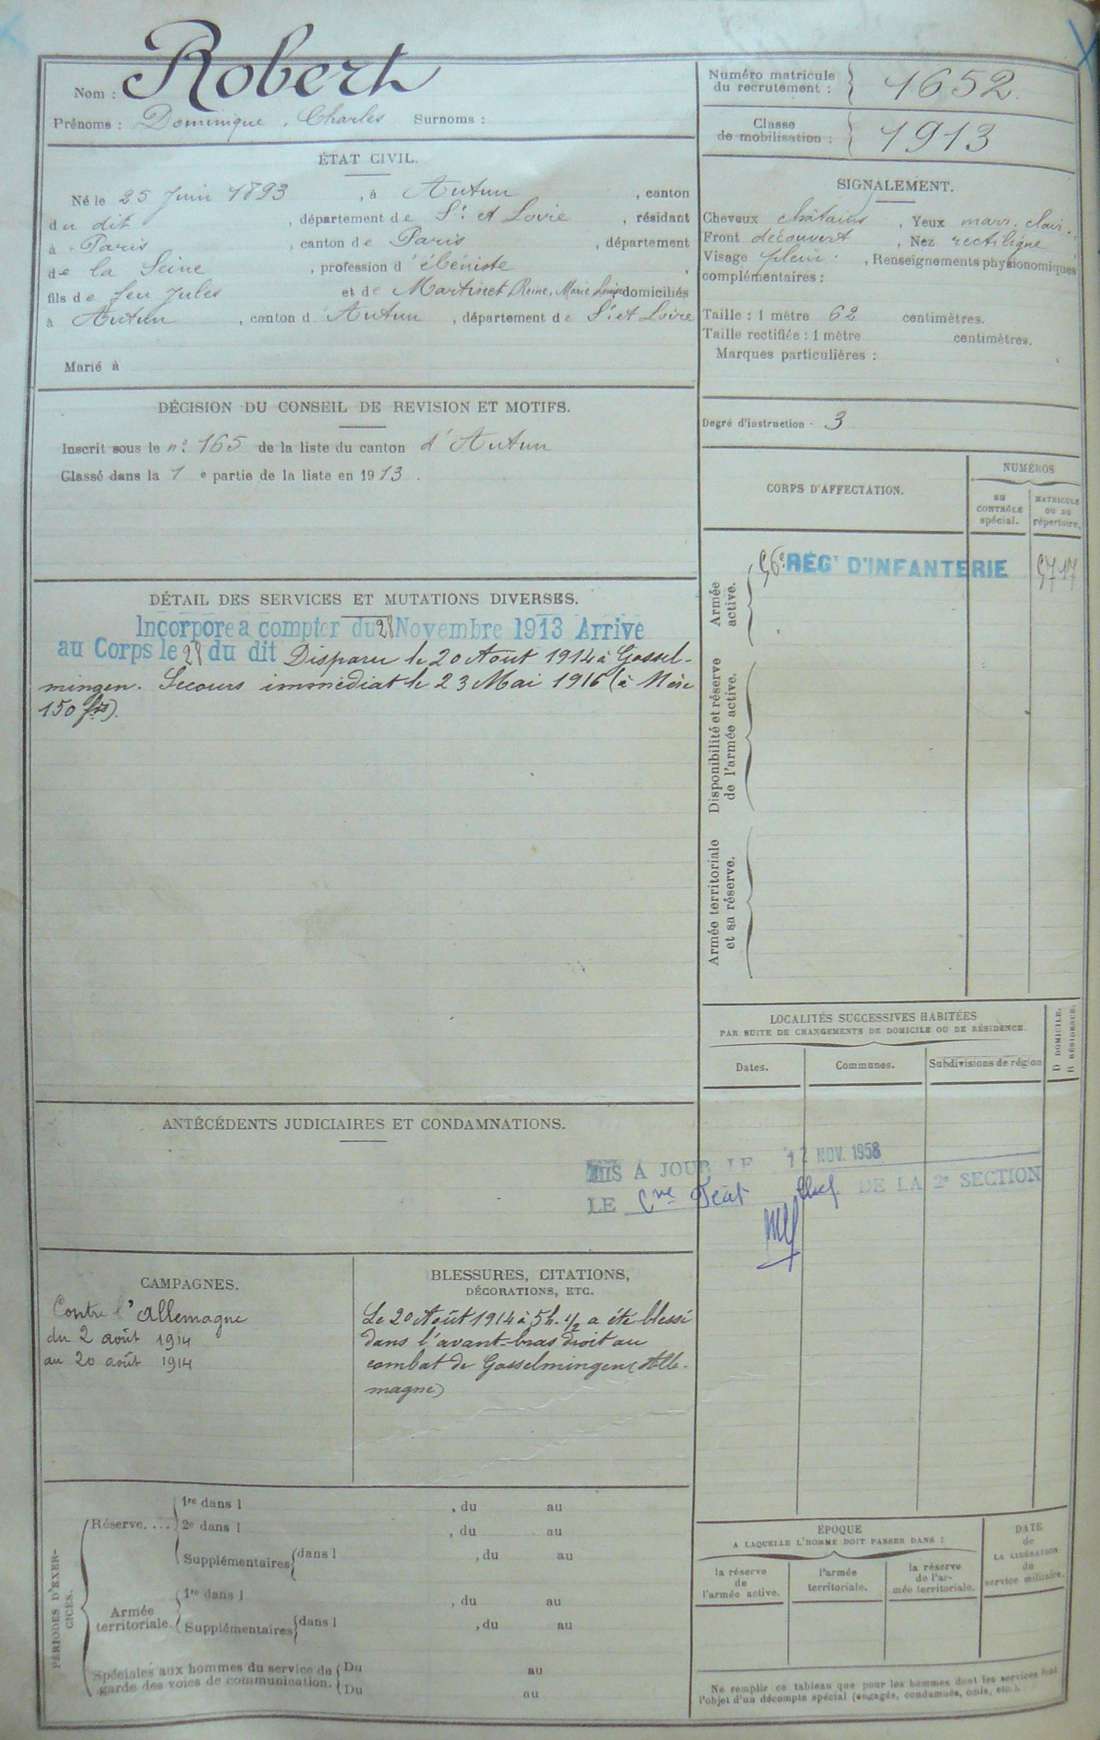 Nom : Robert
Prénoms : Dominique, Charles Surnoms :
Numéro matricule du recrutement : 1652
Classe de mobilisation : 1913
ÉTAT CIVIL.
Né le 25 Juin 1893, à Autun, canton
du dit, département de S. et Loire, résidant
à Paris, canton de Paris, département
de la Seine, profession d'ébéniste,
fils de feu Jules et de Martinet Reine, Marie domiciliés
à Autun, canton d'Autun, département de S. et Loire
Marié à
SIGNALEMENT.
Cheveux châtains, Yeux marr. clair.
Front découvert, Nez rectiligne
Visage plein., Renseignements physionomiques
complémentaires :
Taille : 1 mètre 62 centimètres.
Taille rectifiée : 1 mètre centimètres.
Marques particulières :
Degré d'instruction · 3
DÉCISION DU CONSEIL DE REVISION ET MOTIFS.
Inscrit sous le n° 165 de la liste du canton d'Autun
Classé dans la 1e partie de la liste en 1913.
CORPS D'AFFECTATION.
NUMÉROS
au CONTRÔLE spécial.
MATRICULE OU DU répertoire.
Armée active.
56e RÉGt D'INFANTERIE 5717
Disponibilité et réserve de l'armée active.
Armée territoriale et sa réserve.
DÉTAIL DES SERVICES ET MUTATIONS DIVERSES.
Incorporé à compter du 28 Novembre 1913 Arrivé
au Corps le 28 du dit Disparu le 20 Août 1914 à Gossel-
mingen. Secours immédiat le 23 Mai 1916 (à Mère
150 frs).
LOCALITÉS SUCCESSIVES HABITÉES
PAR SUITE DE CHANGEMENTS DE DOMICILE OU DE RÉSIDENCE.
Dates. Communes. Subdivisions de région
D DOMICILE.
R RÉSIDENCE.
ANTÉCÉDENTS JUDICIAIRES ET CONDAMNATIONS.
MIS A JOUR LE 17 NOV. 1958
LE Chef DE LA 2e SECTION
CAMPAGNES.
Contre l'Allemagne
du 2 août 1914
au 20 août 1914
BLESSURES, CITATIONS,
DÉCORATIONS, ETC.
Le 20 Août 1914 à 5h.1/2 a été blessé
dans l'avant-bras droit au
combat de Gosselmingen (Alle-
magne)
PÉRIODES D'EXERCICES.
Réserve....
1re dans l , du au
2e dans l , du au
Supplémentaires dans l , du au
Armée territoriale.
1re dans l , du au
Supplémentaires dans l , du au
Spéciales aux hommes du service de garde des voies de communication.
Du au
Du au
ÉPOQUE
A LAQUELLE L'HOMME DOIT PASSER DANS :
la réserve de l'armée active.
l'armée territoriale.
la réserve de l'armée territoriale.
DATE de LA LIBÉRATION du service militaire.
Ne remplir ce tableau que pour les hommes dont les services font
l'objet d'un décompte spécial (engagés, condamnés, omis, etc.).